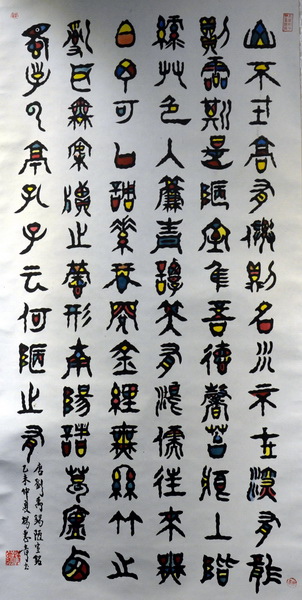 山不在高有僊則名水不在深有龍
則靈斯是陋室隹吾德馨苔痕上階
綠艸色入簾青談笑有鴻儒往來無
白丁可以調素琴閱金經無絲竹止
亂耳無案牘止勞形南陽諸葛廬西
蜀子云亭孔子云何陋止有
唐劉禹錫陋室銘
乙未仲夏